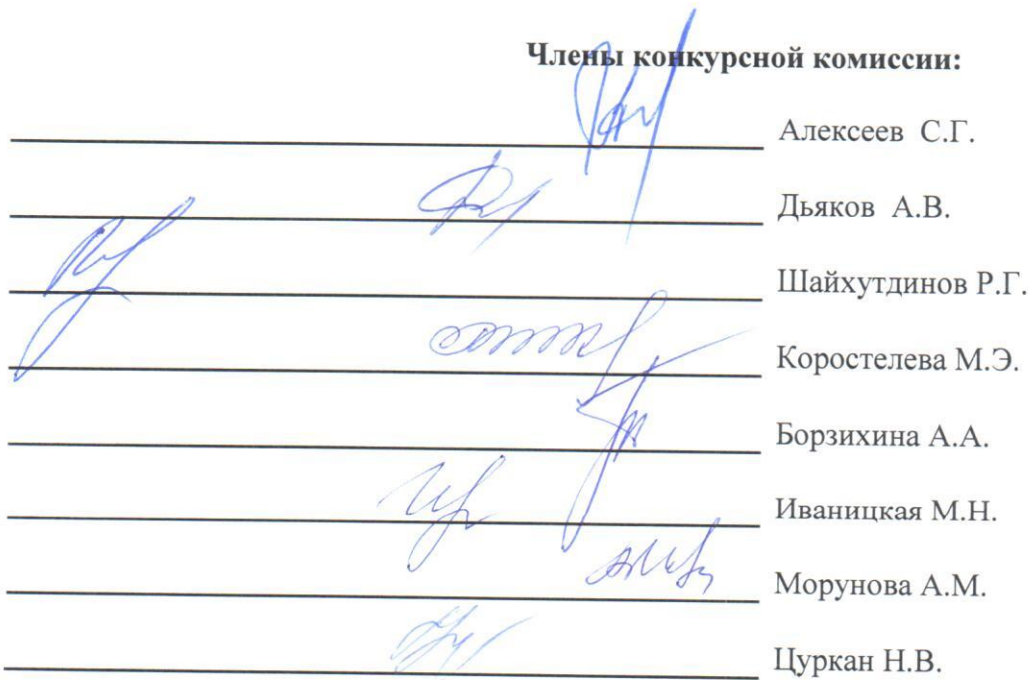 Члены конкурсной комиссии:
Алексеев С.Г.
Дьяков А.В.
Шайхутдинов Р.Г.
Коростелева М.Э.
Борзихина А.А.
Иваницкая М.Н.
Морунова А.М.
Цуркан Н.В.